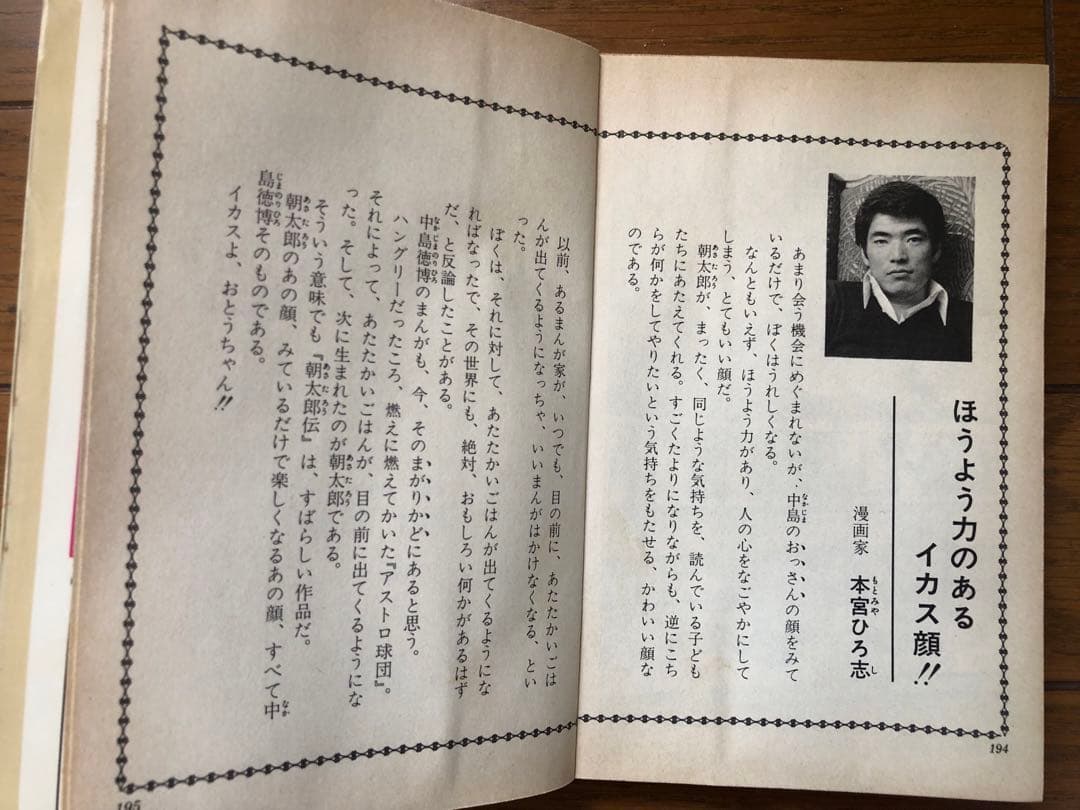 ほうよう力のある
イカス顔!!
漫画家 本宮ひろ志
もとみや し
あまり会う機会にめぐまれないが、中島のおっさんの顔をみて
なかじま
いるだけで、ぼくはうれしくなる。
なんともいえず、ほうよう力があり、人の心をなごやかにして
しまう、とてもいい顔だ。
朝太郎が、まったく、同じような気持ちを、読んでいる子ども
あさたろう
たちにあたえてくれる。すごくたよりになりながらも、逆にこち
らが何かをしてやりたいという気持ちをもたせる、かわいい顔な
のである。
194
以前、あるまんが家が、いつでも、目の前に、あたたかいごは
んが出てくるようになっちゃ、いいまんがはかけなくなる、とい
った。
ぼくは、それに対して、あたたかいごはんが出てくるようにな
ればなったで、その世界にも、絶対、おもしろい何かがあるはず
だ、と反論したことがある。
中島徳博のまんがも、今、そのまがりかどにあると思う。
なかじまのりひろ
ハングリーだったころ、燃えに燃えてかいた『アストロ球団』。
それによって、あたたかいごはんが、目の前に出てくるようにな
った。そして、次に生まれたのが朝太郎である。
あさたろう
そういう意味でも『朝太郎伝』は、すばらしい作品だ。
あさたろう
朝太郎のあの顔、みているだけで楽しくなるあの顔、すべて中
あさたろう なか
島徳博そのものである。
じまのりひろ
イカスよ、おとうちゃん!!
195